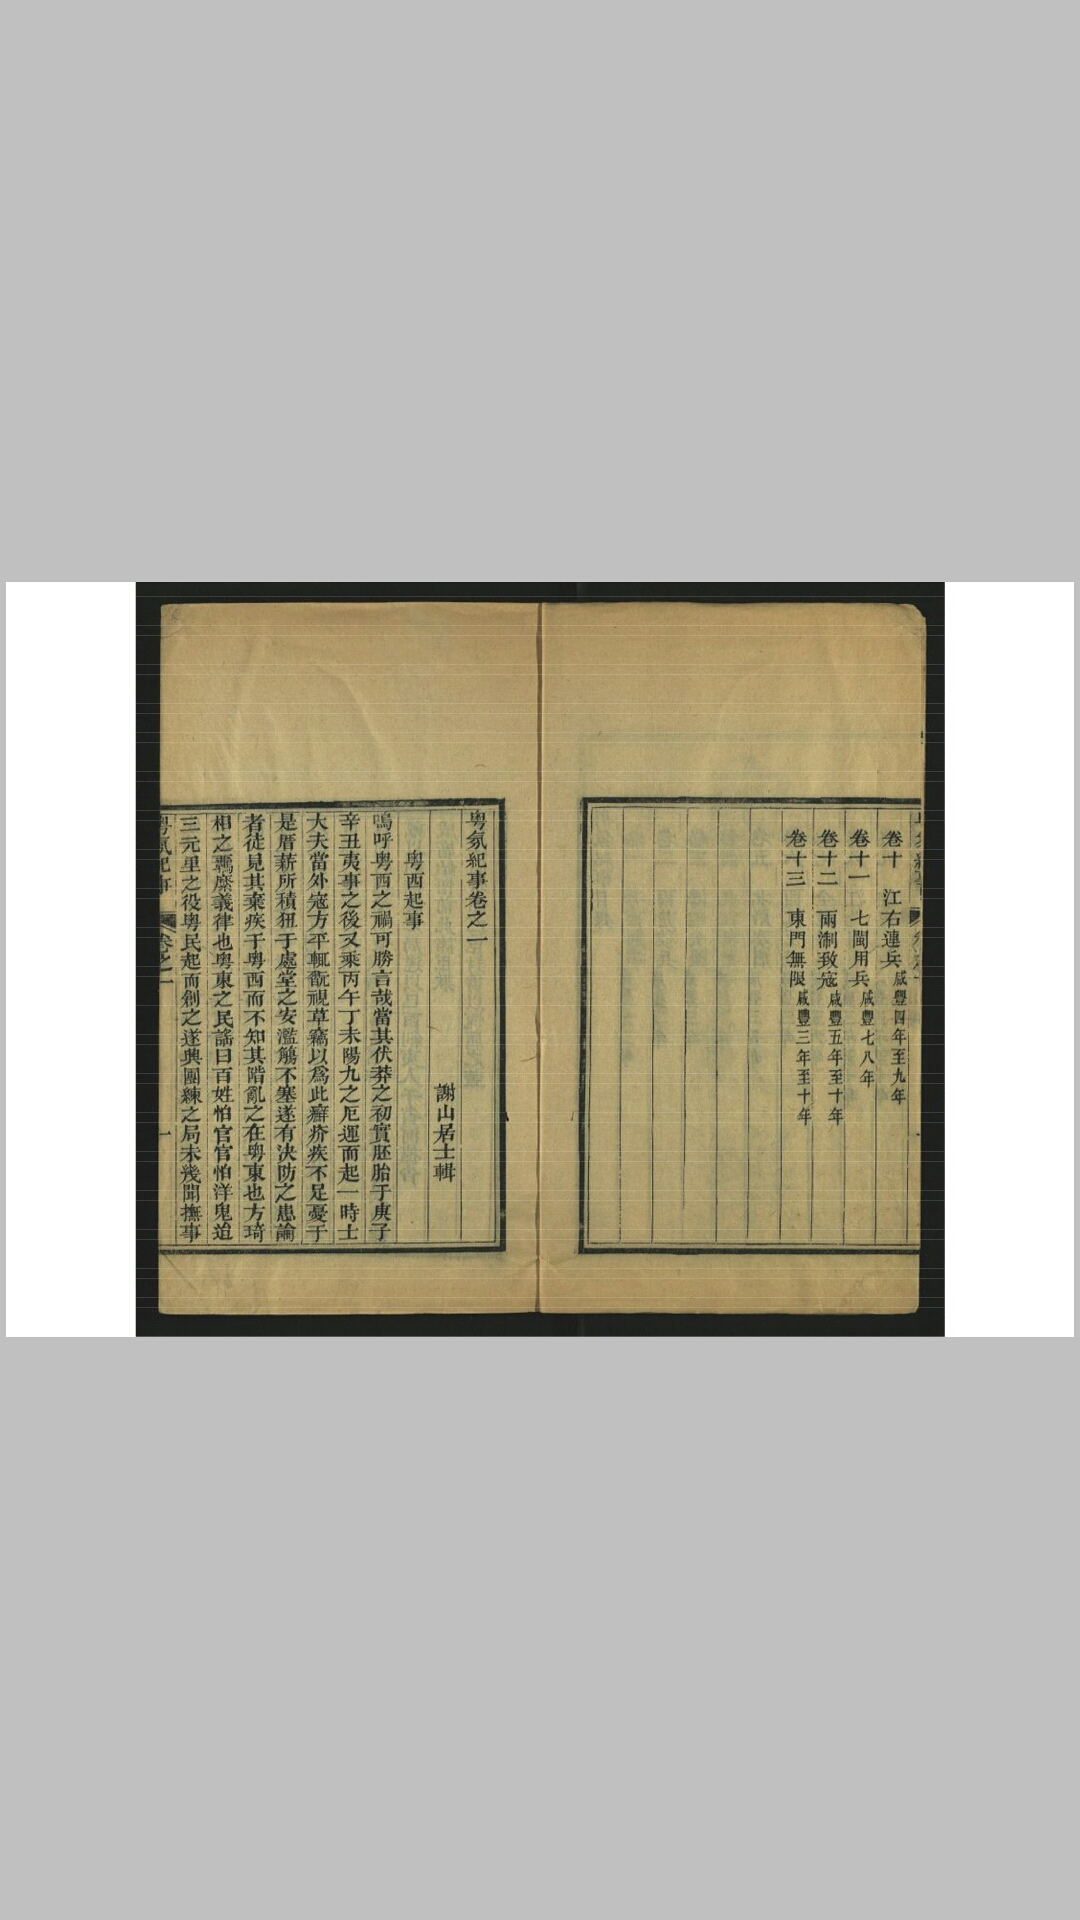 卷十　江右連兵咸豐四年至九年
卷十一　七閩用兵咸豐七八年
卷十二　兩淛致寇咸豐五年至十年
卷十三　東門無限咸豐三年至十年
粤氛紀事卷之一
謝山居士輯
粤西起事
嗚呼粤西之禍可勝言哉當其伏莽之初實胚胎于庚子
辛丑夷事之後又乘丙午丁未陽九之厄運而起一時士
大夫當外寇方平輒翫視草竊以爲此癬疥疾不足憂于
是厝薪所積狃于處堂之安濫觴不塞遂有決防之患論
者徒見其棄疾于粤西而不知其階亂之在粤東也方琦
相之羈縻義律也粤東之民謠曰百姓怕官官怕洋鬼迨
三元里之役粤民起而創之遂興團練之局未幾聞撫事
粤氛紀事 卷之一 一